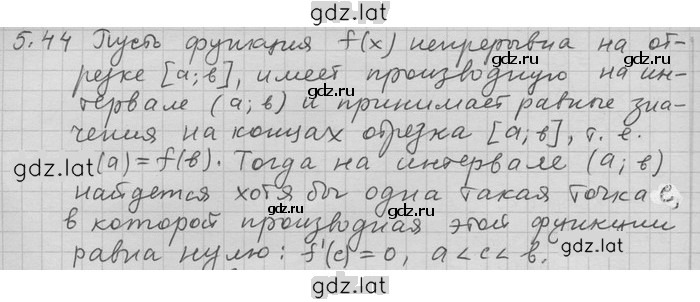 gdz.lat
5.44 Пусть функция f(x) непрерывна на от-
резке [а;в], имеет производную на ин-
тервале (а;в) и принимает равные зна-
чения на концах отрезка [а;в], т. е.
gdz.lat (а)=f(в). Тогда на интервале (а; в)
найдется хотя бы одна такая точка с,
в которой производная этой функции
равна нулю: f'(c)=0, a<c<в.
gdz.lat
gdz.lat
gdz.lat